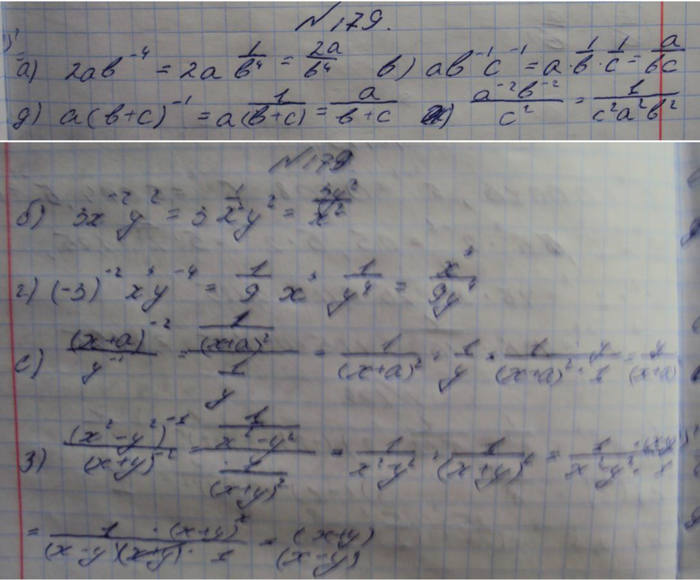 №179.
а) 2ab⁻⁴ = 2a 1/b⁴ = 2a/b⁴ в) ab⁻¹c⁻¹ = a · 1/b · 1/c = a/bc
д) a(b+c)⁻¹ = a 1/(b+c) = a/b+c a⁻²b⁻²/c² = 1/c²a²b²
№179
б) 3x⁻²y² = 3 1/x² y² = 3y²/x²
г) (-3)⁻² x³y⁻⁴ = 1/9 x³ 1/y⁴ = x³/9y⁴
е) (x+a)⁻²/y⁻¹ = 1/(x+a)² / 1/y = 1/(x+a)² : 1/y = 1/(x+a)² · y/1 = y/(x+a)
з) (x²-y²)⁻¹/(x+y)⁻² = 1/x²-y² / 1/(x+y)² = 1/x²-y² : 1/(x+y)² = 1/x²-y²
= 1 · (x+y)²/(x-y)(x+y) · 1 = (x+y)/(x-y)